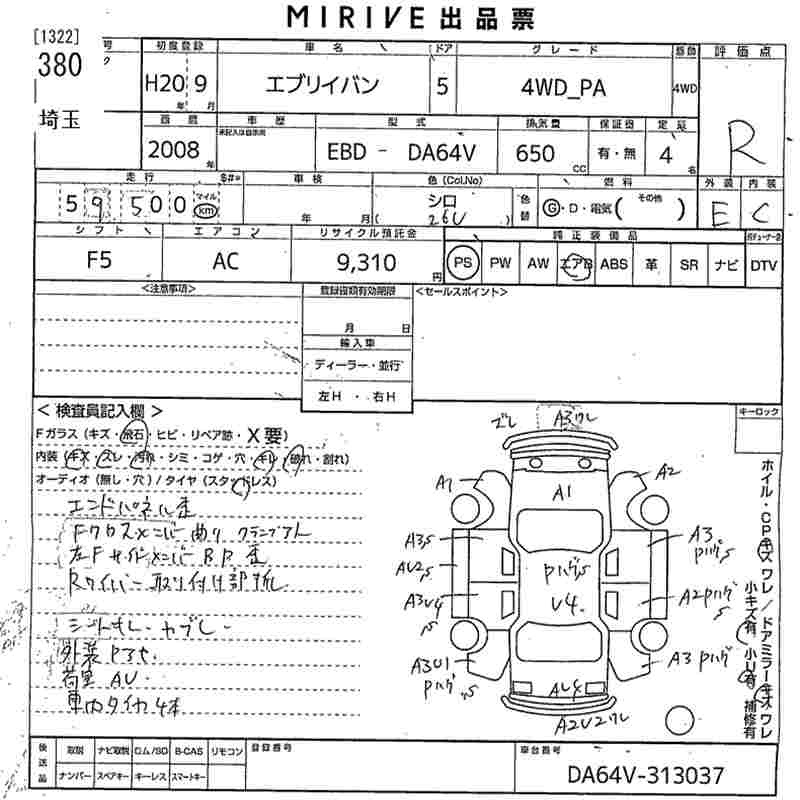 MIRIVE 出品票
[1322] 号 初度登録 車名 ドア グレード 駆動 評価点
380 ク H20 9 エブリイバン 5 4WD_PA 4WD
年 月
埼玉 西暦 車歴 型式 排気量 保証書 定員 R
未記入は自家用
2008 年 EBD - DA64V 650 CC 有・無 4 名
走行 車検 色(Col.No) 燃料 外装 内装
59500 マイル km 年 月 シロ ( 26U ) 色替 G・D・電気( その他 ) E C
シフト エアコン リサイクル預託金 純正装備品
F5 AC 9,310 円 PS PW AW エアB ABS 革 SR ナビ DTV
<注意事項> 登録書類有効期限 <セールスポイント>
月 日
輸入車
ディーラー・並行
左H ・ 右H
< 検査員記入欄 > キーロック
Fガラス (キズ・飛石・ヒビ・リペア跡・X要)
内装 (キズ・スレ・汚れ・シミ・コゲ・穴・キレ・破れ・割れ)
オーディオ (無し・穴) / タイヤ (スタッドレス)
エンドパネル歪
Fクロスメンバー曲り
左Fサイドメンバー BP 歪
Rワイパー取り付け部
シートキレ・ヤブレ
外装 Pアセ
荷室 AU
車内タイヤ4本
ズレ A3ワレ
A1 A1 A2
A3,S A3 Pハゲ,S
AU2,S Pハゲ,S
A3U4,S U4 A2Pハゲ,S
A3U1 Pハゲ,S A3 Pハゲ,S
AU4
A2U2ワレ
ホイル・CPキズ ワレ / ドアミラーキズ ワレ
小キズ有 小U有 補修有
後送品 取説 ナビ取説 ロム/SD B-CAS リモコン 登録番号 車台番号
ナンバー スペアキー キーレス スマートキー DA64V-313037